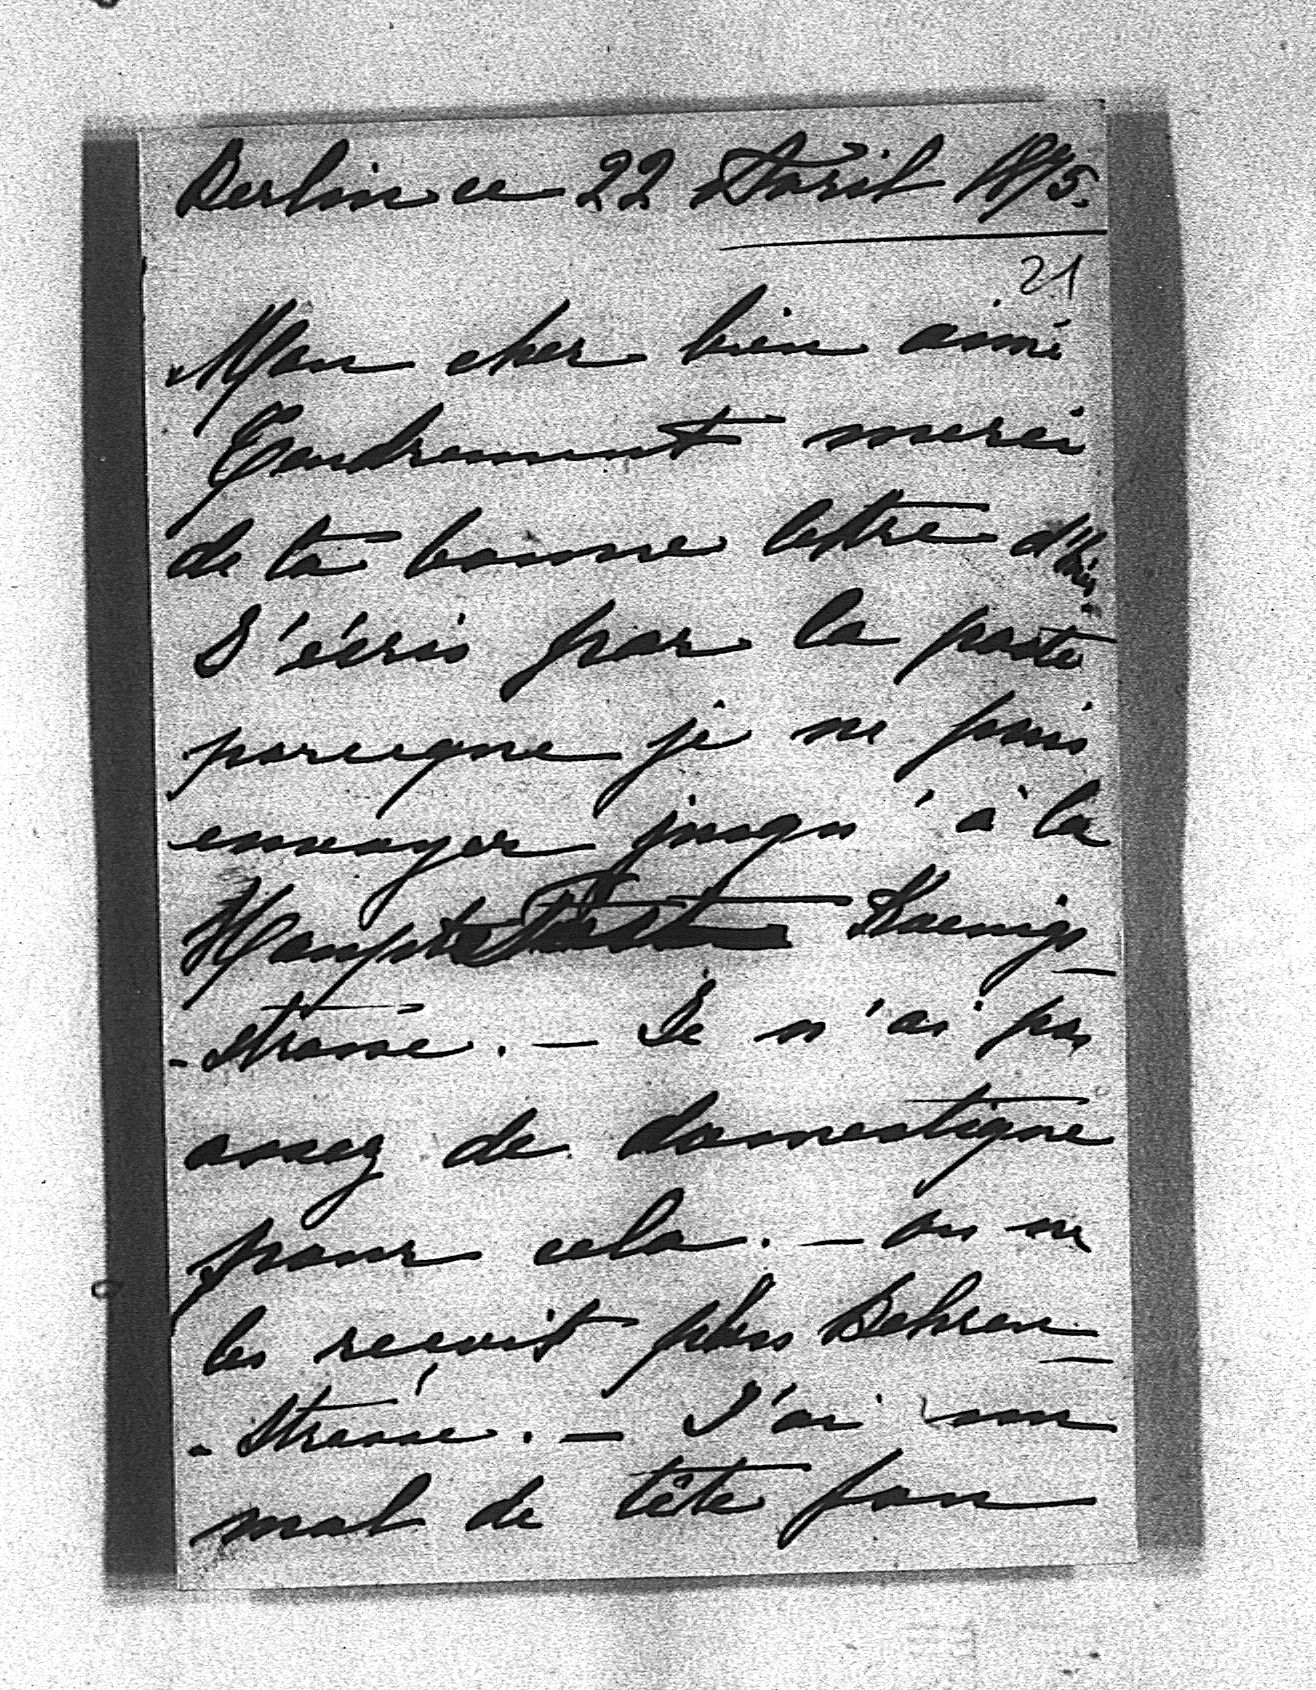 Berlin ce 22 Avril 1875.
21
Mon cher bien aimé
Tendrement merci
de ta bonne lettre d'hier.
J'écris par la poste
parceque je ne puis
envoyer jusqu'à la
Haupt Koenigs-
-strasse. — Je n'ai pas
assez de domestique
pour cela. — on ne
les reçoit plus Behren-
-strasse. — J'ai un
mal de tête fou